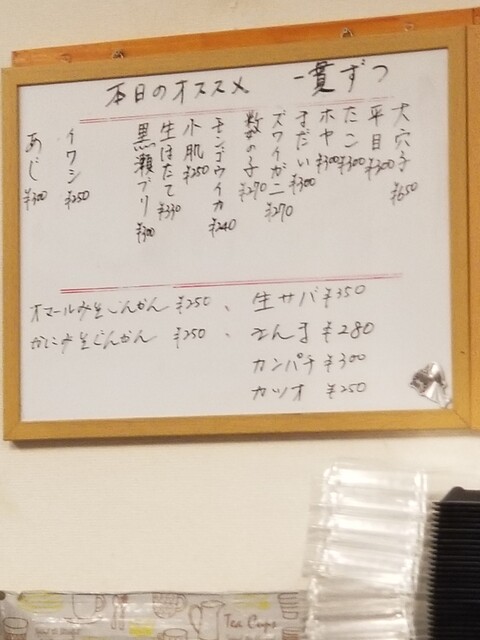 本日のオススメ 一貫ずつ
大穴子 ¥650
平目 ¥300
たこ ¥300
ホヤ ¥300
まだい ¥300
ズワイガニ ¥270
数の子 ¥270
モンゴウイカ ¥240
小肌 ¥250
生ほたて ¥330
黒瀬ブリ ¥300
イワシ ¥250
あじ ¥300
オマールみそぐんかん ¥250、
かにみそぐんかん ¥250、
生サバ ¥350
さんま ¥280
カンパチ ¥300
カツオ ¥250
Tea Cups